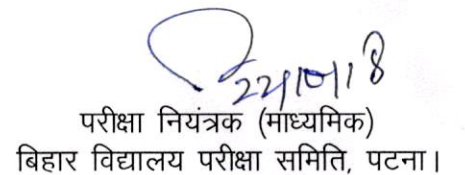 22/10/18
परीक्षा नियंत्रक (माध्यमिक)
बिहार विद्यालय परीक्षा समिति, पटना।